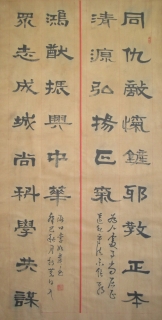 同仇敵愾鏟邪教正本
清源弘揚正氣
眾志成城尚科學共謀
鴻猷振興中華